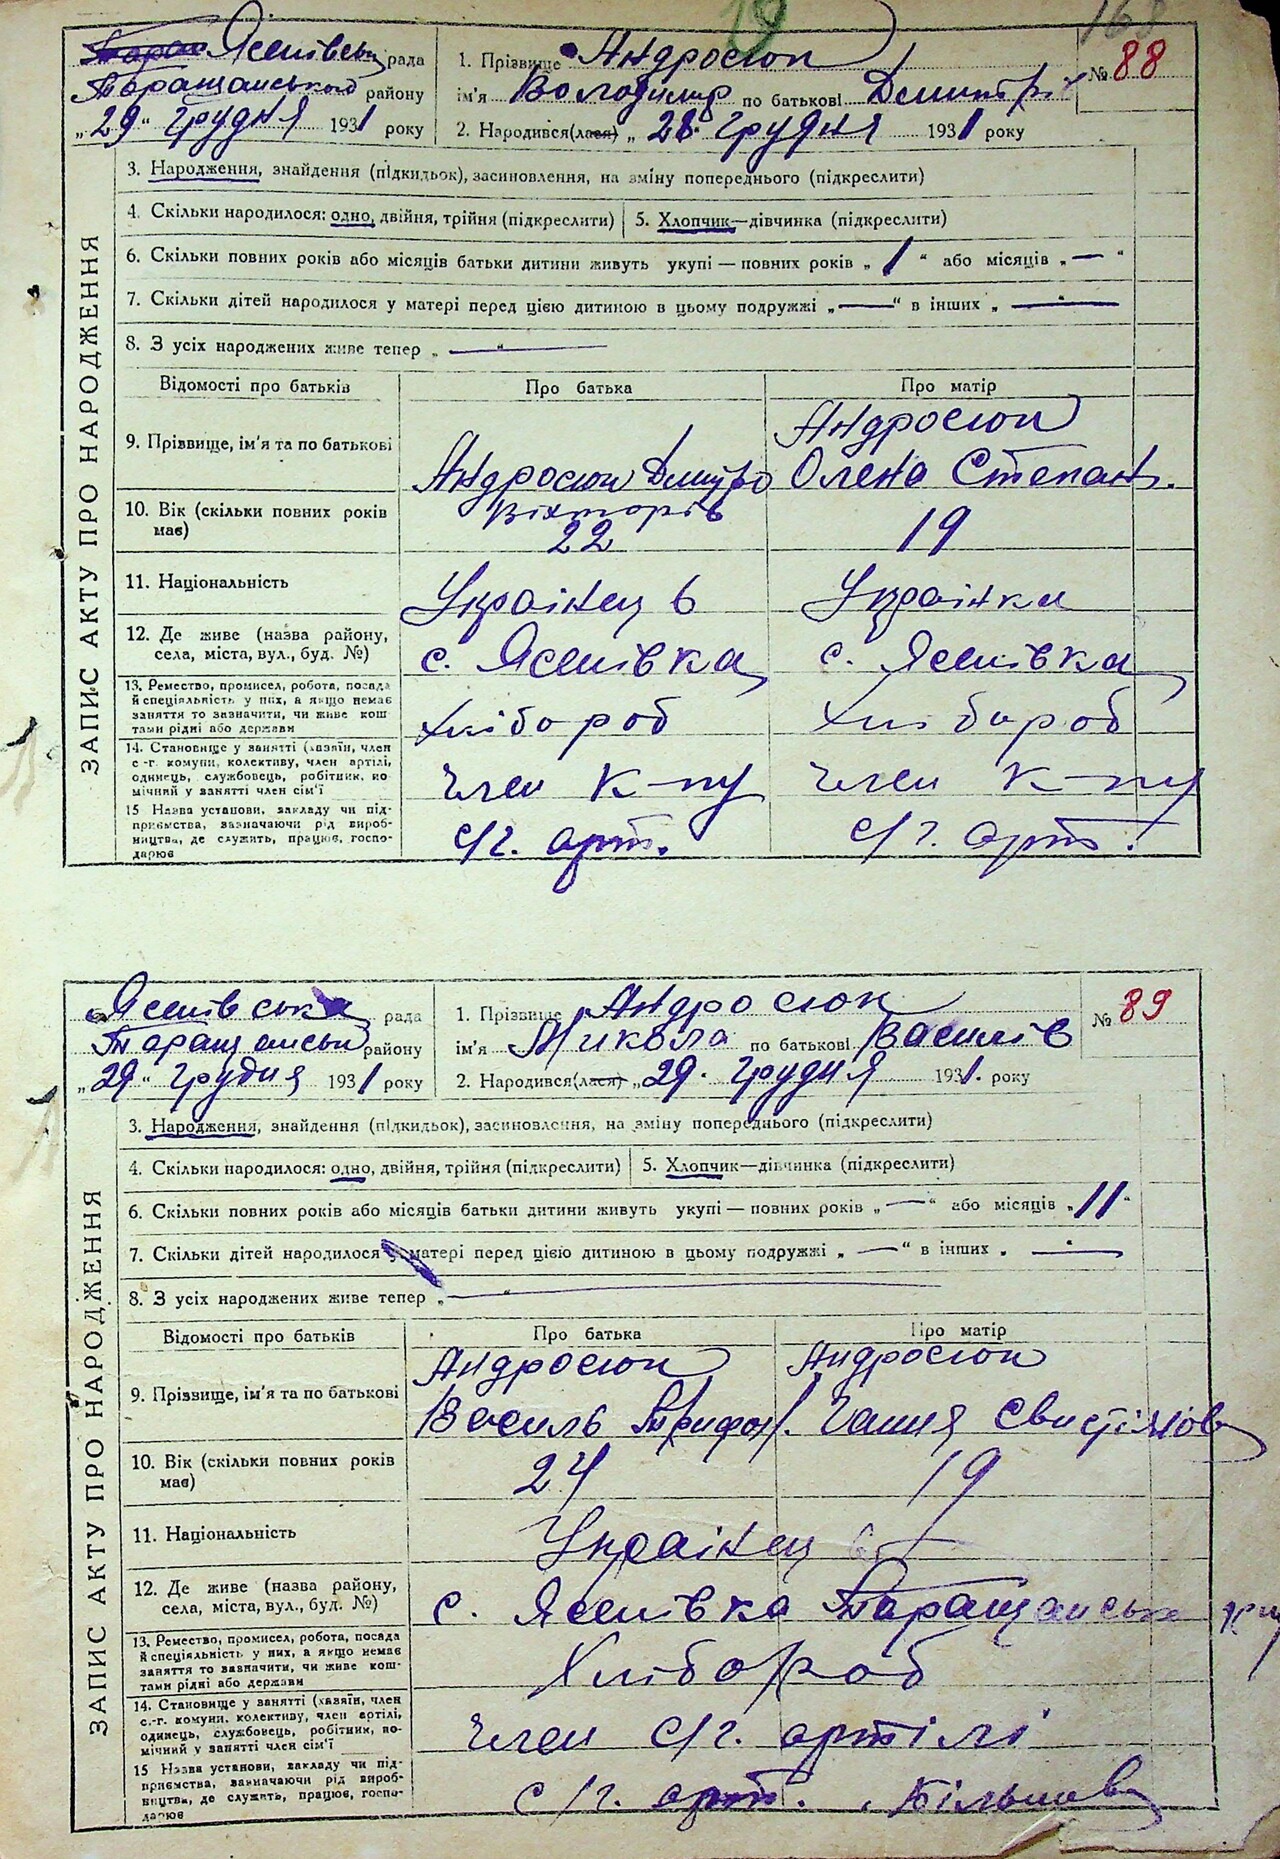 19
168
Ясенівськ рада
Таращанського району
„29“ Грудня 1931 року
1. Прізвище Андросюк
ім'я Володимир по батькові Дмитрів
2. Народився(лася) „28. Грудня 1931 року
№ 88
ЗАПИС АКТУ ПРО НАРОДЖЕННЯ
3. Народження, знайдення (підкидьок), засиновлення, на зміну попереднього (підкреслити)
4. Скільки народилося: одно, двійня, трійня (підкреслити) 5. Хлопчик—дівчинка (підкреслити)
6. Скільки повних років або місяців батьки дитини живуть укупі — повних років „ 1 “ або місяців „ — “
7. Скільки дітей народилося у матері перед цією дитиною в цьому подружжі „ — “ в інших „ — “
8. З усіх народжених живе тепер „ — “
Відомості про батьків Про батька Про матір
9. Прізвище, ім'я та по батькові
Андросюк Дмитро Вікторів
Андросюк Олена Степан.
10. Вік (скільки повних років має) 22 19
11. Національність Українець Українка
12. Де живе (назва району, села, міста, вул., буд. №) с. Ясенівка с. Ясенівка
13. Ремество, промисел, робота, посада й спеціяльність у них, а якщо немає заняття то зазначити, чи живе коштами рідні або держави
Хлібороб Хлібороб
14. Становище у занятті (хазяїн, член с.-г. комуни, колективу, член артілі, одинець, службовець, робітник, помічний у занятті член сім'ї
Член к-пу Член к-пу
15 Назва установи, закладу чи підприємства, зазначаючи рід виробництва, де служить, працює, господарює
с/г. арт. с/г. арт.
Ясенівська рада
Таращанськ району
„29“ Грудня 1931 року
1. Прізвище Андросюк
ім'я Микола по батькові Василів
2. Народився(лася) „29. Грудня 1931. року
№ 89
ЗАПИС АКТУ ПРО НАРОДЖЕННЯ
3. Народження, знайдення (підкидьок), засиновлення, на зміну попереднього (підкреслити)
4. Скільки народилося: одно, двійня, трійня (підкреслити) 5. Хлопчик—дівчинка (підкреслити)
6. Скільки повних років або місяців батьки дитини живуть укупі — повних років „ — “ або місяців „ 11 “
7. Скільки дітей народилося у матері перед цією дитиною в цьому подружжі „ — “ в інших „ — “
8. З усіх народжених живе тепер „ — “
Відомості про батьків Про батька Про матір
9. Прізвище, ім'я та по батькові
Андросюк Василь Трифон.
Андросюк Гання
10. Вік (скільки повних років має) 24 19
11. Національність Українець
12. Де живе (назва району, села, міста, вул., буд. №) с. Ясенівка Таращанськ
13. Ремество, промисел, робота, посада й спеціяльність у них, а якщо немає заняття то зазначити, чи живе коштами рідні або держави
Хлібороб
14. Становище у занятті (хазяїн, член с.-г. комуни, колективу, член артілі, одинець, службовець, робітник, помічний у занятті член сім'ї
Член с/г. артілі
15 Назва установи, закладу чи підприємства, зазначаючи рід виробництва, де служить, працює, господарює
с/г. арт.